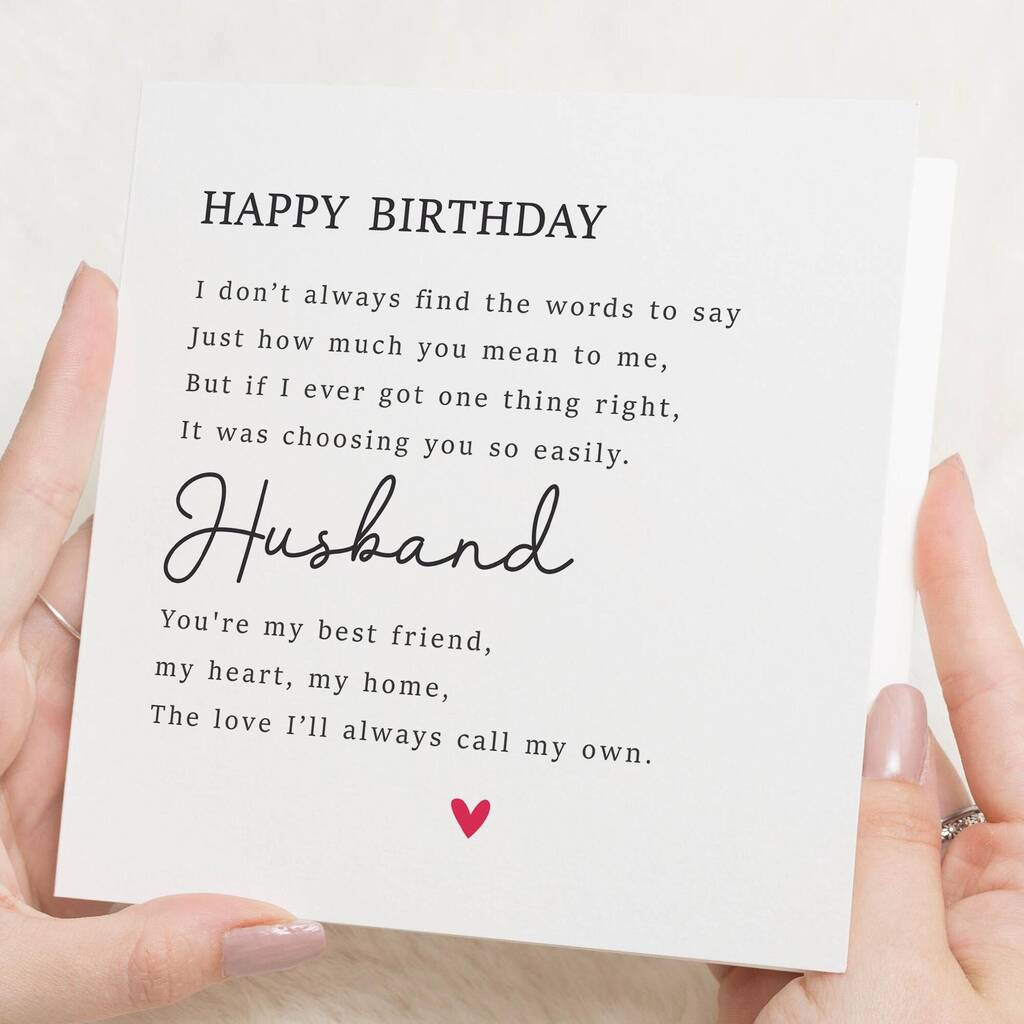 HAPPY BIRTHDAY
I don’t always find the words to say
Just how much you mean to me,
But if I ever got one thing right,
It was choosing you so easily.
Husband
You're my best friend,
my heart, my home,
The love I’ll always call my own.